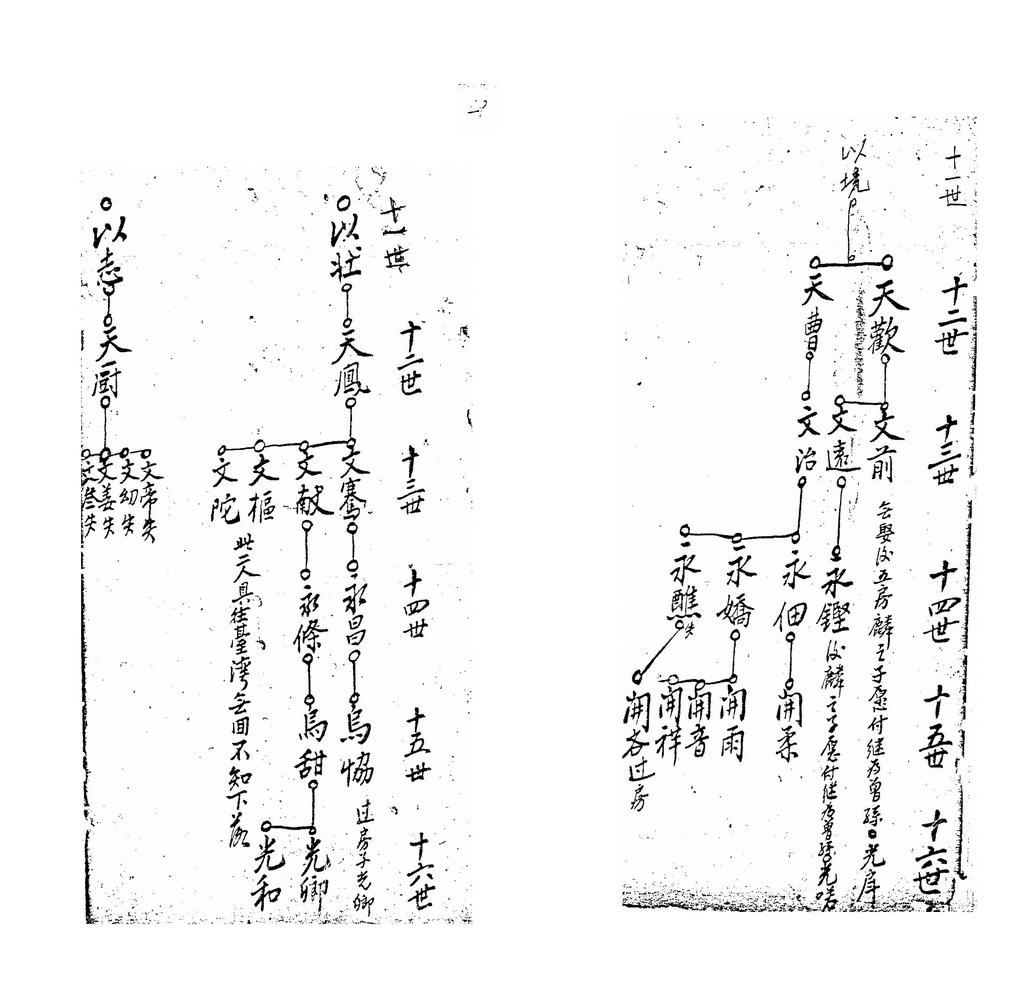 十一世
以境
十二世
天歡
天曹
十三世
文前
文遠
文治
无娶後五房麟之子愿付继为曾孫
光庠
十四世
永鏗
永佃
永嬌
永醮失
後麟之子愿付继为曾孫
十五世
開柔
開雨
開音
開祥
開各过房
十六世
十一世
以壯
以志
十二世
天鳳
天厨
十三世
文騫
文献
文樞
文陀
文帝失
文幼失
文姜失
文叁失
此二人具往臺湾无回不知下落
十四世
永昌
永條
十五世
烏協
烏甜
过房子光卿
十六世
光卿
光和